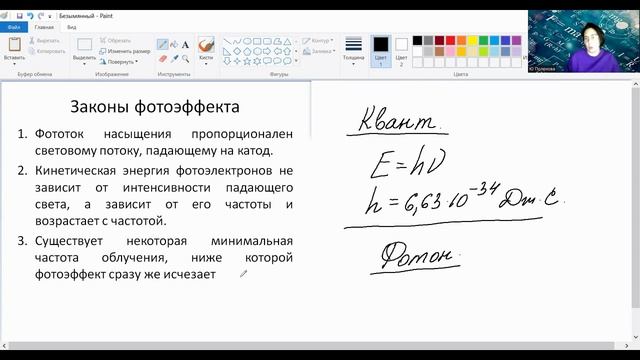 Безымянный - Paint
Файл
Главная
Вид
Вставить
Вырезать
Копировать
Буфер обмена
Выделить
Обрезать
Изменить размер
Повернуть
Изображение
Инструменты
Кисти
Контур
Заливка
Фигуры
Толщина
Цвет 1
Цвет 2
Цвета
Законы фотоэффекта
1. Фототок насыщения пропорционален
световому потоку, падающему на катод.
2. Кинетическая энергия фотоэлектронов не
зависит от интенсивности падающего
света, а зависит от его частоты и
возрастает с частотой.
3. Существует некоторая минимальная
частота облучения, ниже которой
фотоэффект сразу же исчезает
Квант.
E = hν
h = 6,63·10⁻³⁴ Дж·с.
Фотон.